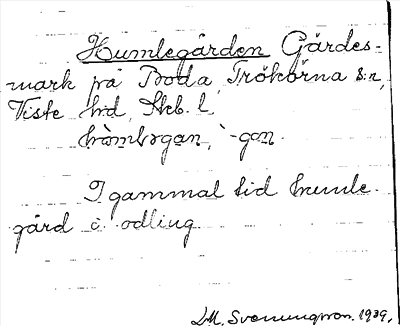 Humlegården Gärdes-
mark på Boda, Trökörna s:n,
Viste hd, Skb. l.
hòmlǝgan, `-gon.
I gammal tid humle-
gård o odling
L.M. Svenungsson. 1939.